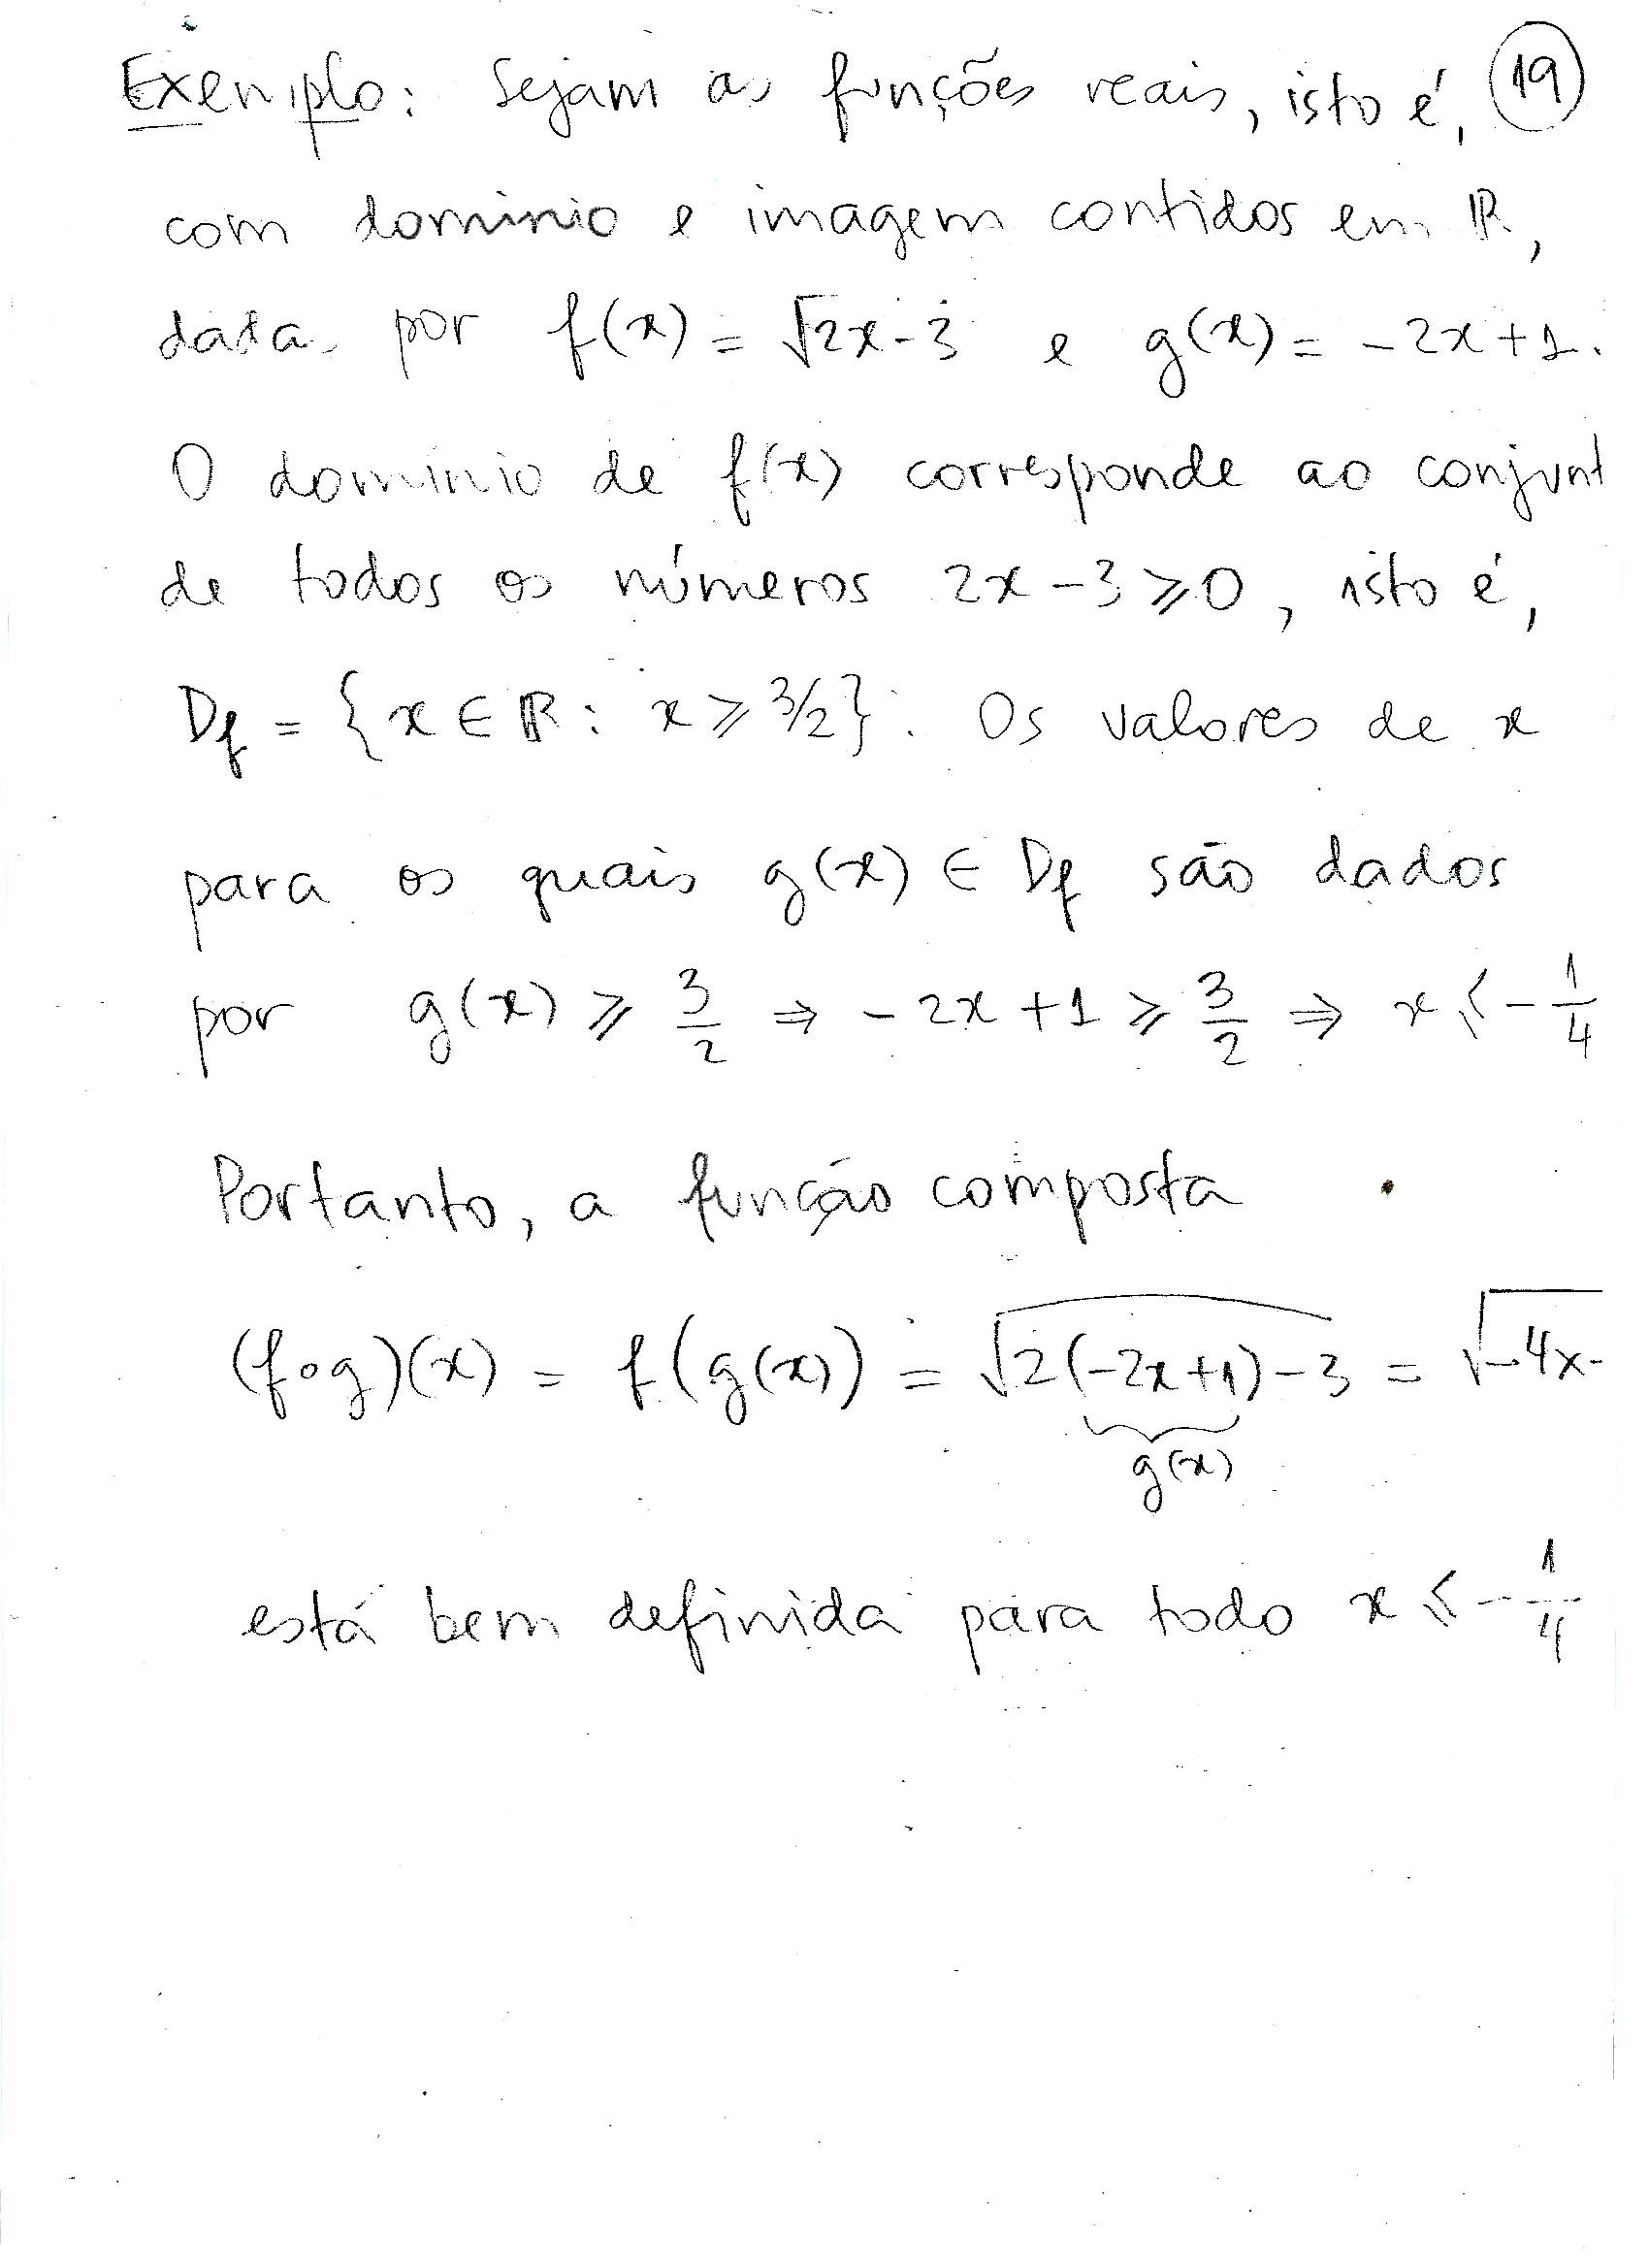 Exemplo: Sejam as funções reais, isto é, 19
com domínio e imagem contidos em ℝ,
dada por f(x) = √2x-3 e g(x) = -2x+1.
O domínio de f(x) corresponde ao conjunt
de todos os números 2x-3 ⩾ 0, isto é,
Df = {x ∈ ℝ : x ⩾ 3/2}. Os valores de x
para os quais g(x) ∈ Df são dados
por g(x) ⩾ 3/2 ⇒ -2x+1 ⩾ 3/2 ⇒ x ⩽ -1/4
Portanto, a função composta
(f∘g)(x) = f(g(x)) = √2(-2x+1)-3 = √-4x-
g(x)
está bem definida para todo x ⩽ -1/4